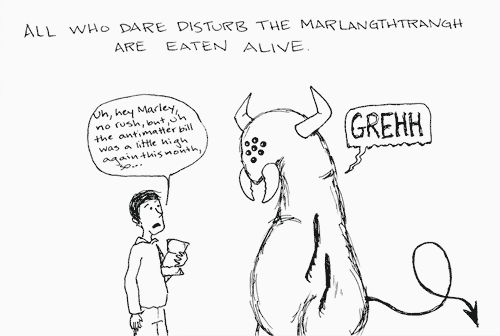 ALL WHO DARE DISTURB THE MARLANGTHTRANGH
ARE EATEN ALIVE.
Uh, hey Marley,
no rush, but, uh
the antimatter bill
was a little high
again this month,
so...
GREHH